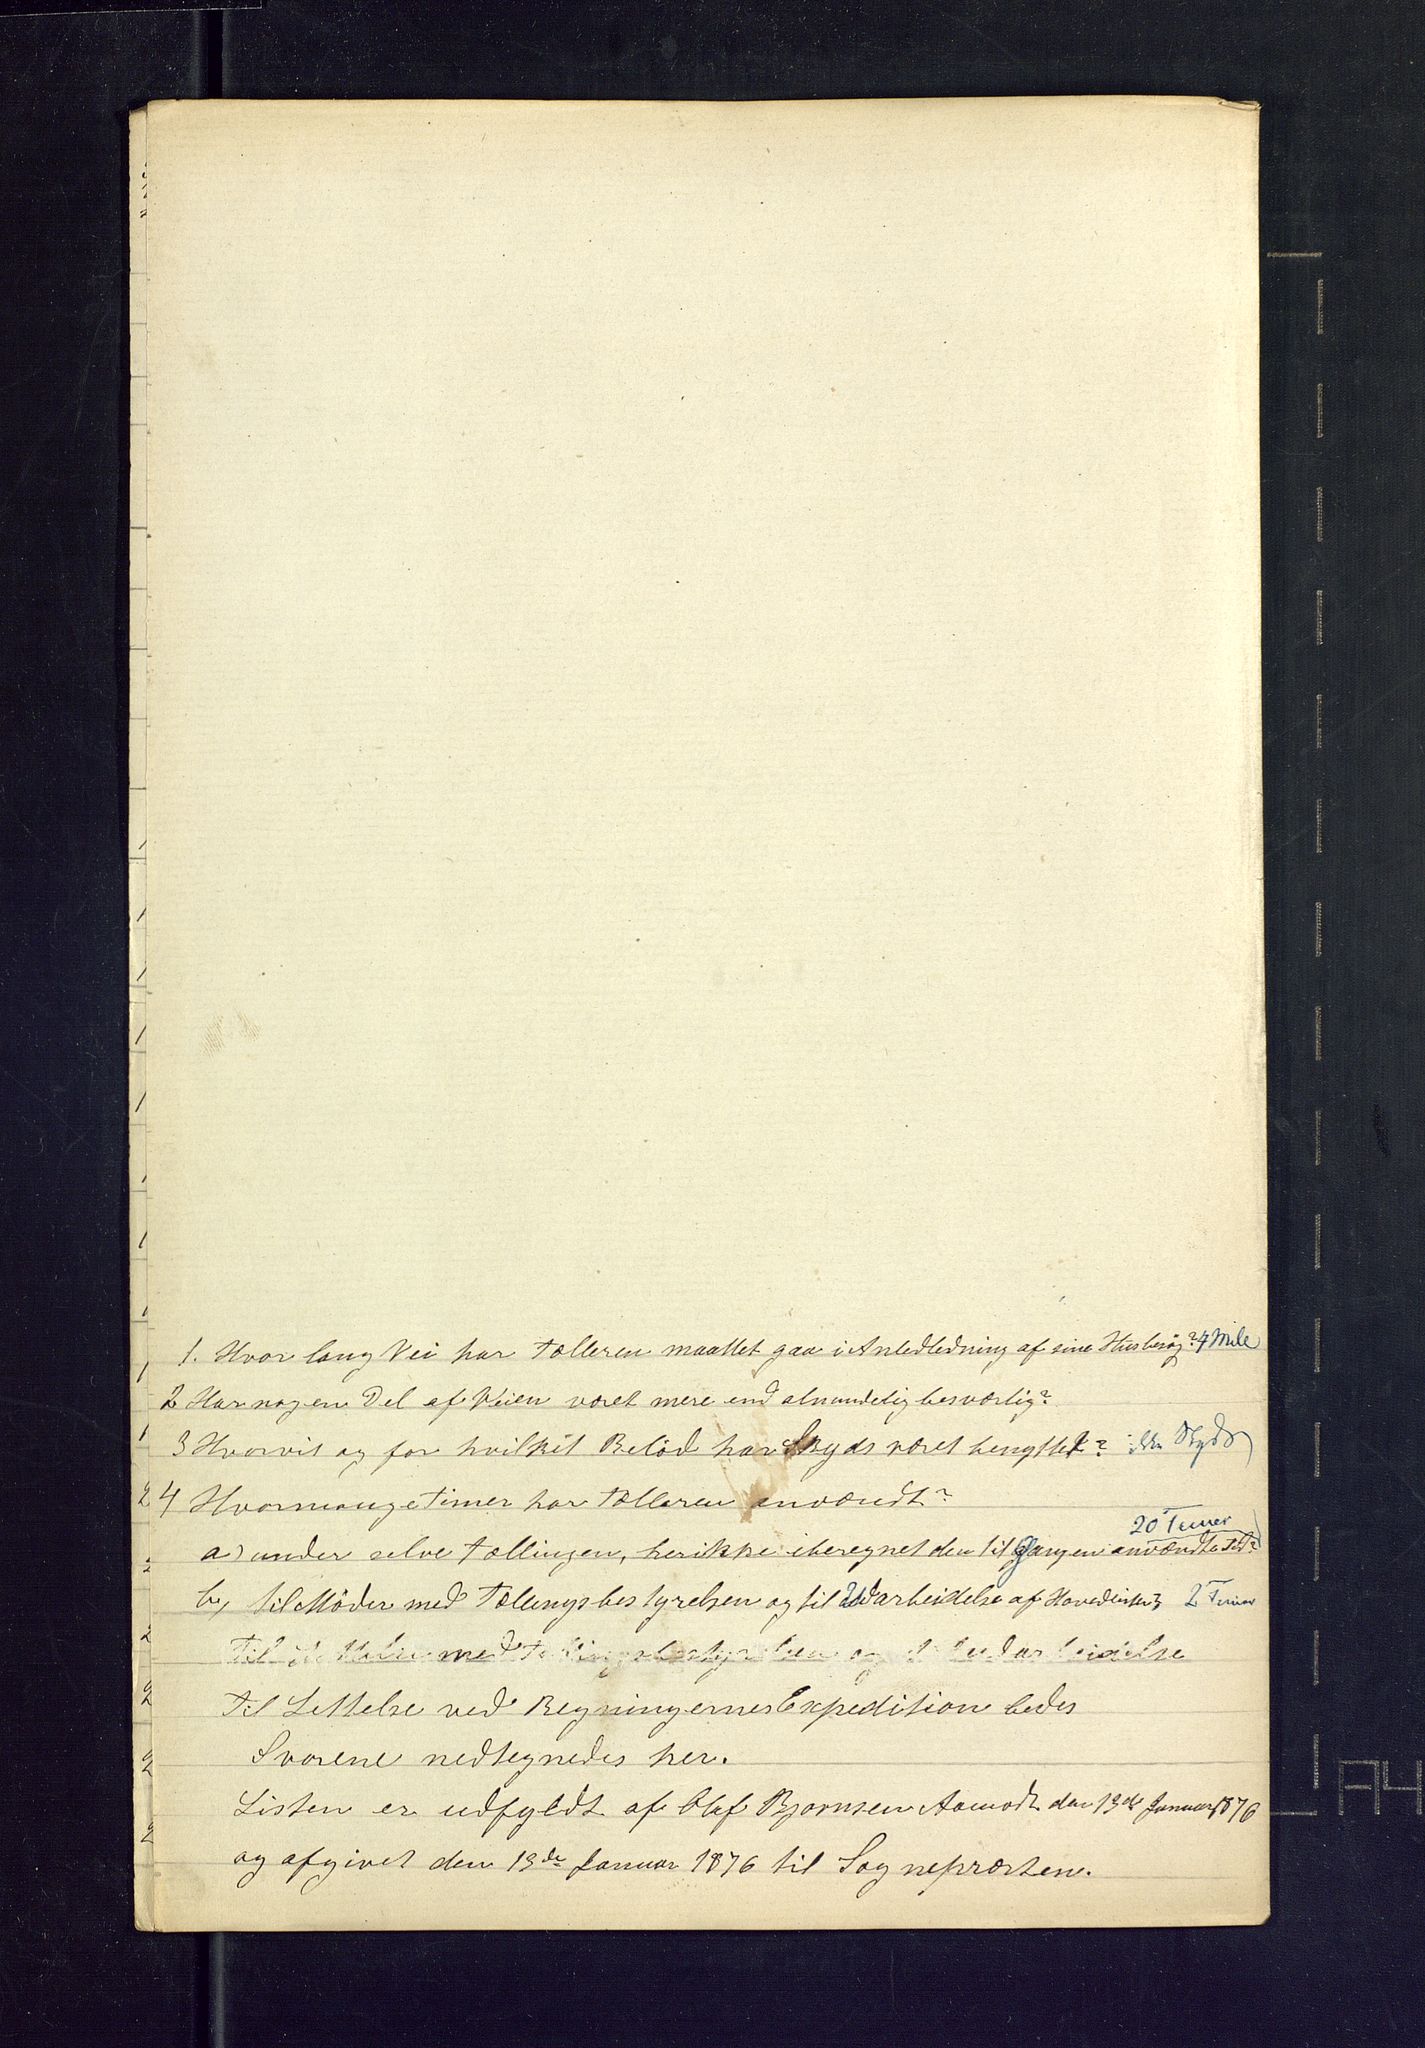 1. Hvor lang Vei har Tælleren maattet gaa i Anledledning af sine Husbesøg? 4 Mile
2 Har nogen Del af Veien været mere end almindelig besværlig?
3 Hvorvit og for hvilket Beløb har Skyds været benyttet? ikke Skyds
4 Hvormange Timer har Tælleren anvændt?
20 Timer
a) under selve Tællingen, herikke iberegnet den til Gangen anvændte Tid?
b, til Møder med Tællingsbestyrelsen og til Udarbeidelse af Hovedlisten? 2 Timer
Til med Tællingsbestyrelsen og udarbeidelse
Til Lettelse ved Regningernes Expedition bedes
Svarene nedtegnedes her.
Listen er udfyldt af Olaf Bjørnsen Aamodt den 13de Januar 1876
og afgivet den 13de Januar 1876 til Sognepræsten.